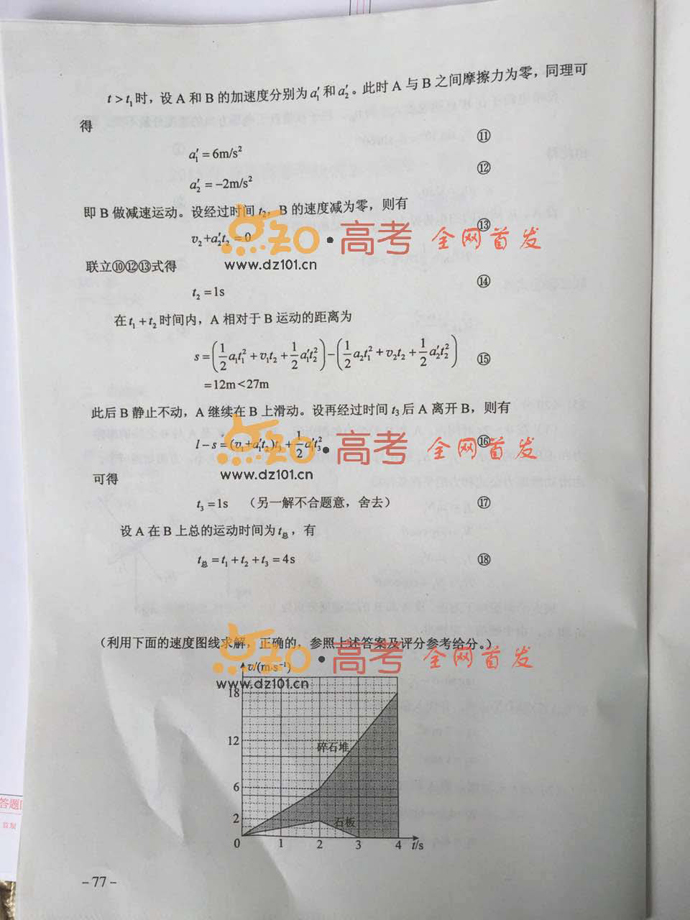 t＞t₁时，设 A 和 B 的加速度分别为 a₁′ 和 a₂′。此时 A 与 B 之间摩擦力为零，同理可
得
a₁′ = 6m/s² ⑪
a₂′ = -2m/s² ⑫
即 B 做减速运动。设经过时间 t₂，B 的速度减为零，则有
v₂+a₂′t₂ = 0 ⑬
点知·高考 全网首发
www.dz101.cn
联立⑩⑫⑬式得
t₂ = 1s ⑭
在 t₁ + t₂ 时间内，A 相对于 B 运动的距离为
s = (1/2 a₁t₁² + v₁t₂ + 1/2 a₁′t₂²) - (1/2 a₂t₁² + v₂t₂ + 1/2 a₂′t₂²) ⑮
= 12m < 27m
此后 B 静止不动，A 继续在 B 上滑动。设再经过时间 t₃ 后 A 离开 B，则有
l - s = (v₁+a₁′t₂)t₃ + 1/2 a₁′t₃² ⑯
点知·高考 全网首发
www.dz101.cn
可得
t₃ = 1s （另一解不合题意，舍去） ⑰
设 A 在 B 上总的运动时间为 t总，有
t总 = t₁ + t₂ + t₃ = 4s ⑱
（利用下面的速度图线求解，正确的，参照上述答案及评分参考给分。）
点知·高考 全网首发
www.dz101.cn
v/(m·s⁻¹)
18
12
碎石堆
6
2
石板
0 1 2 3 4 t/s
- 77 -
答题